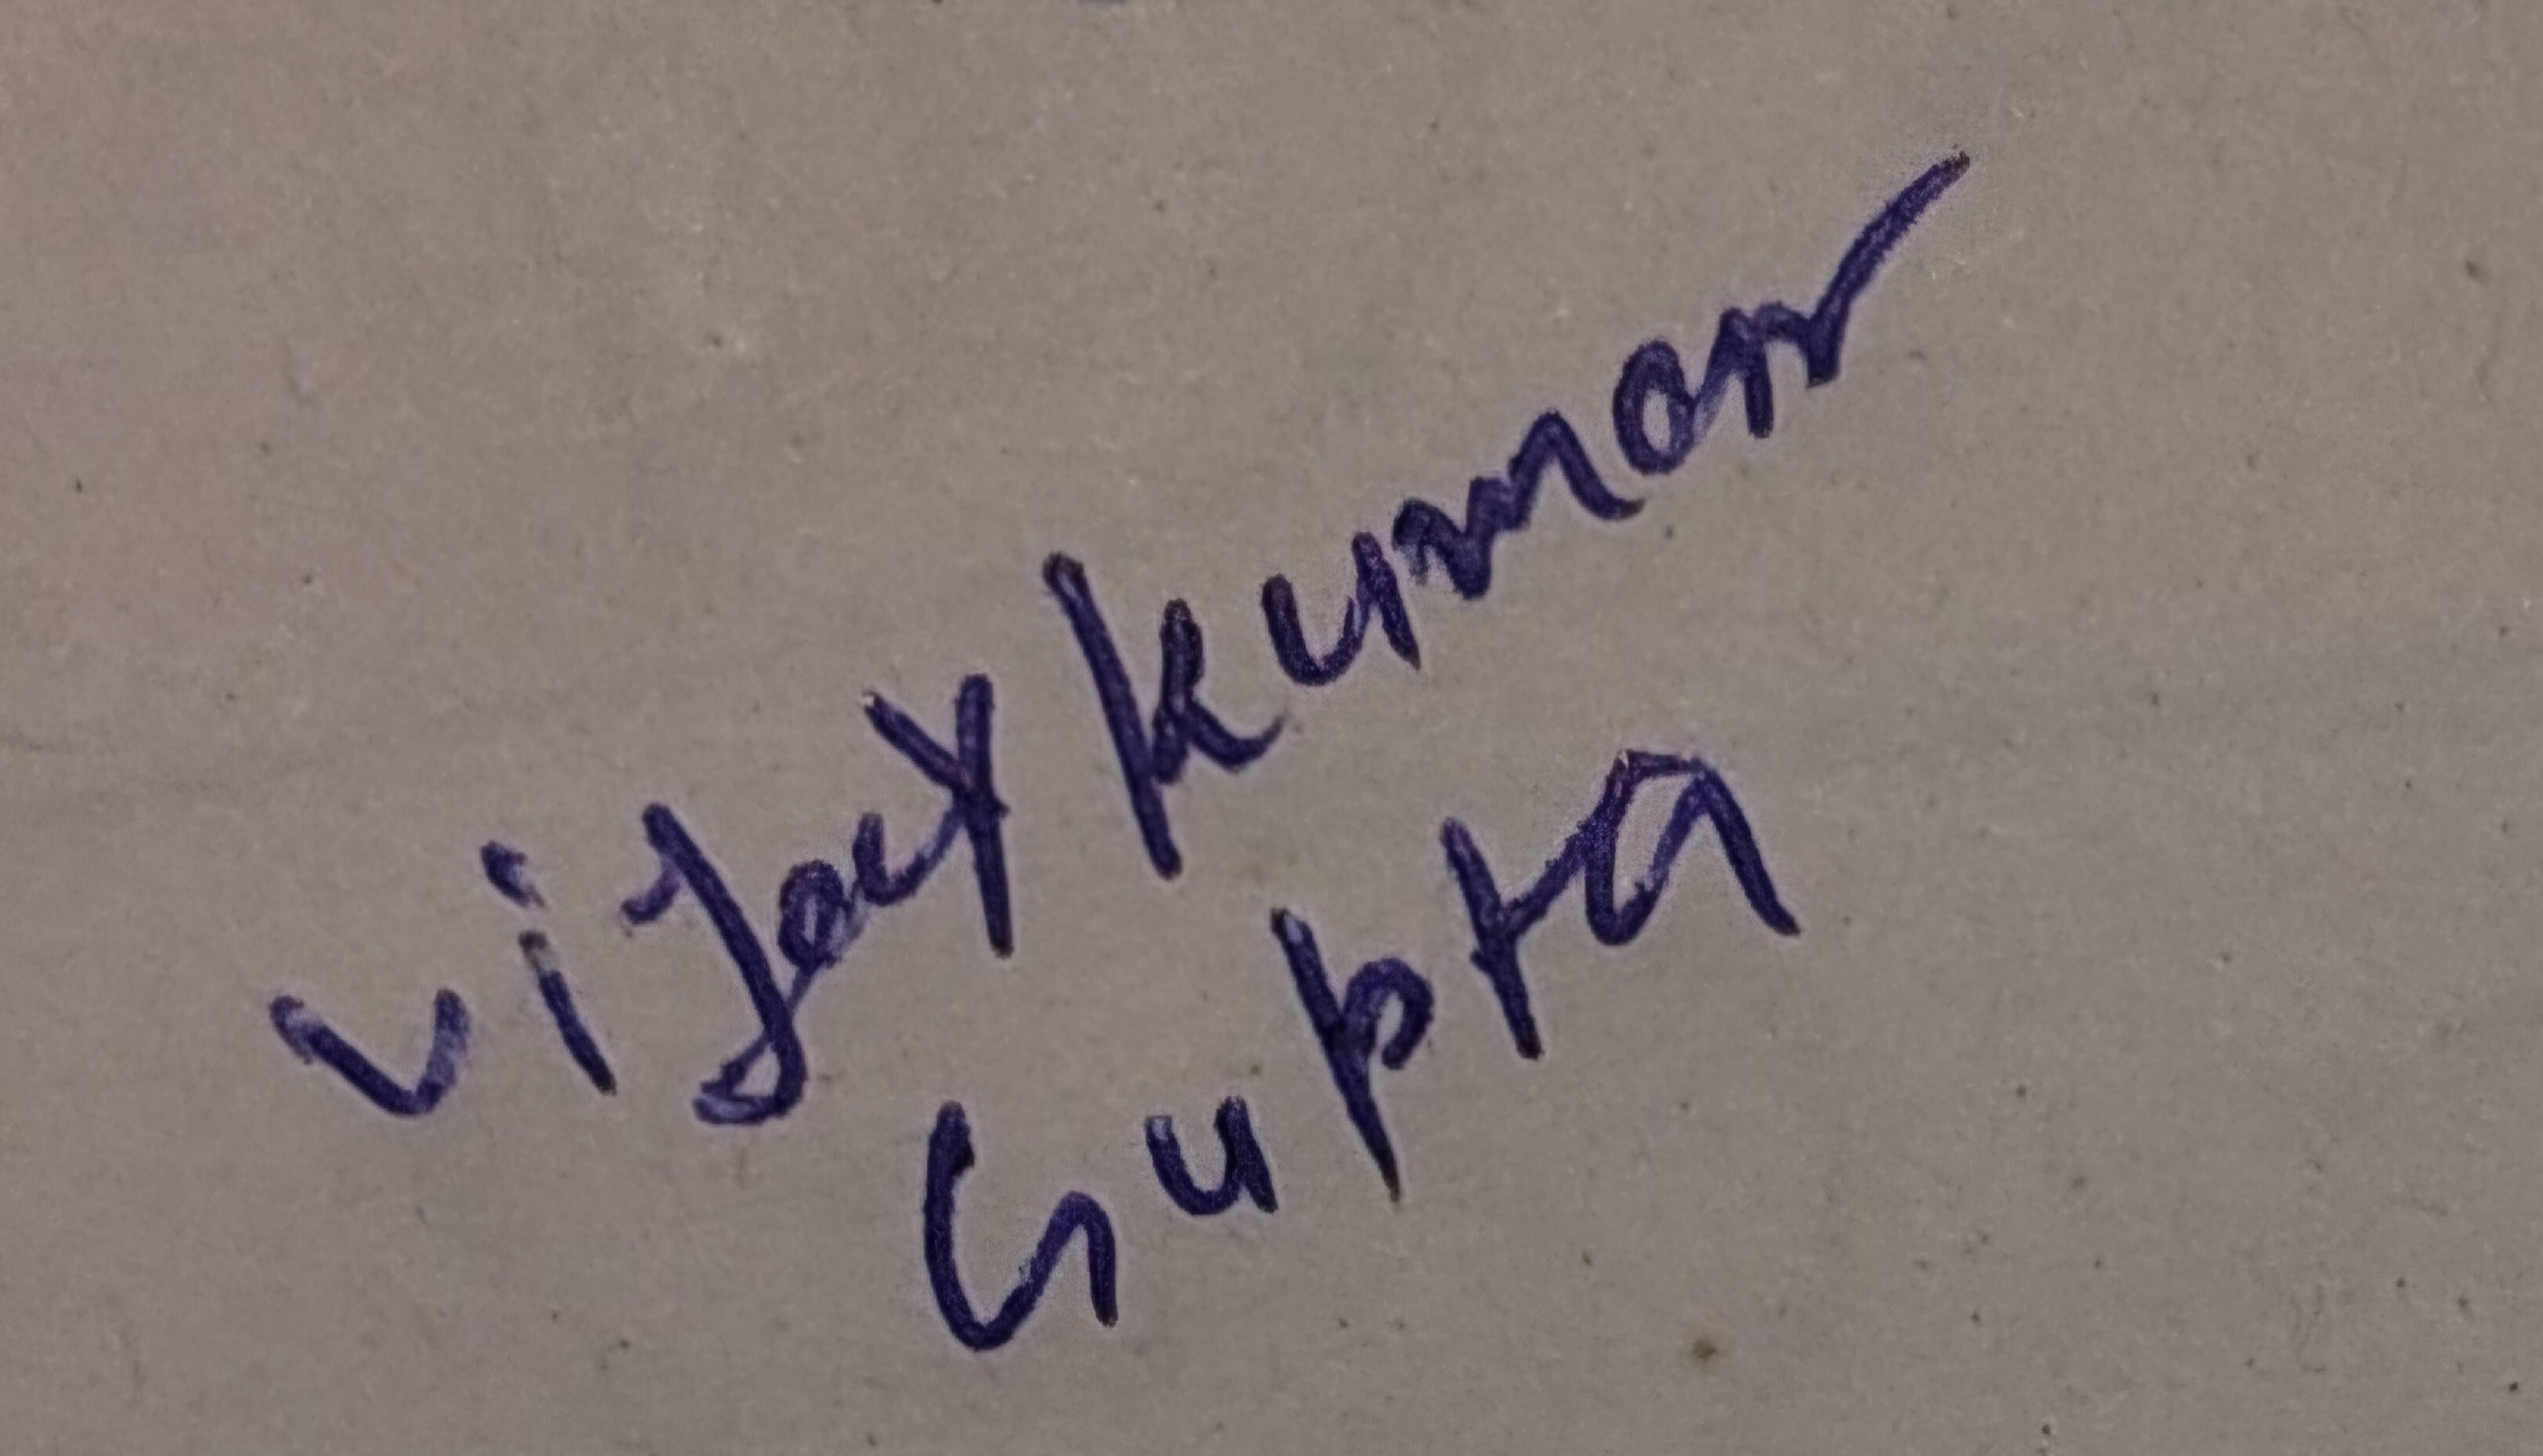 Vijay Kumar
Gupta